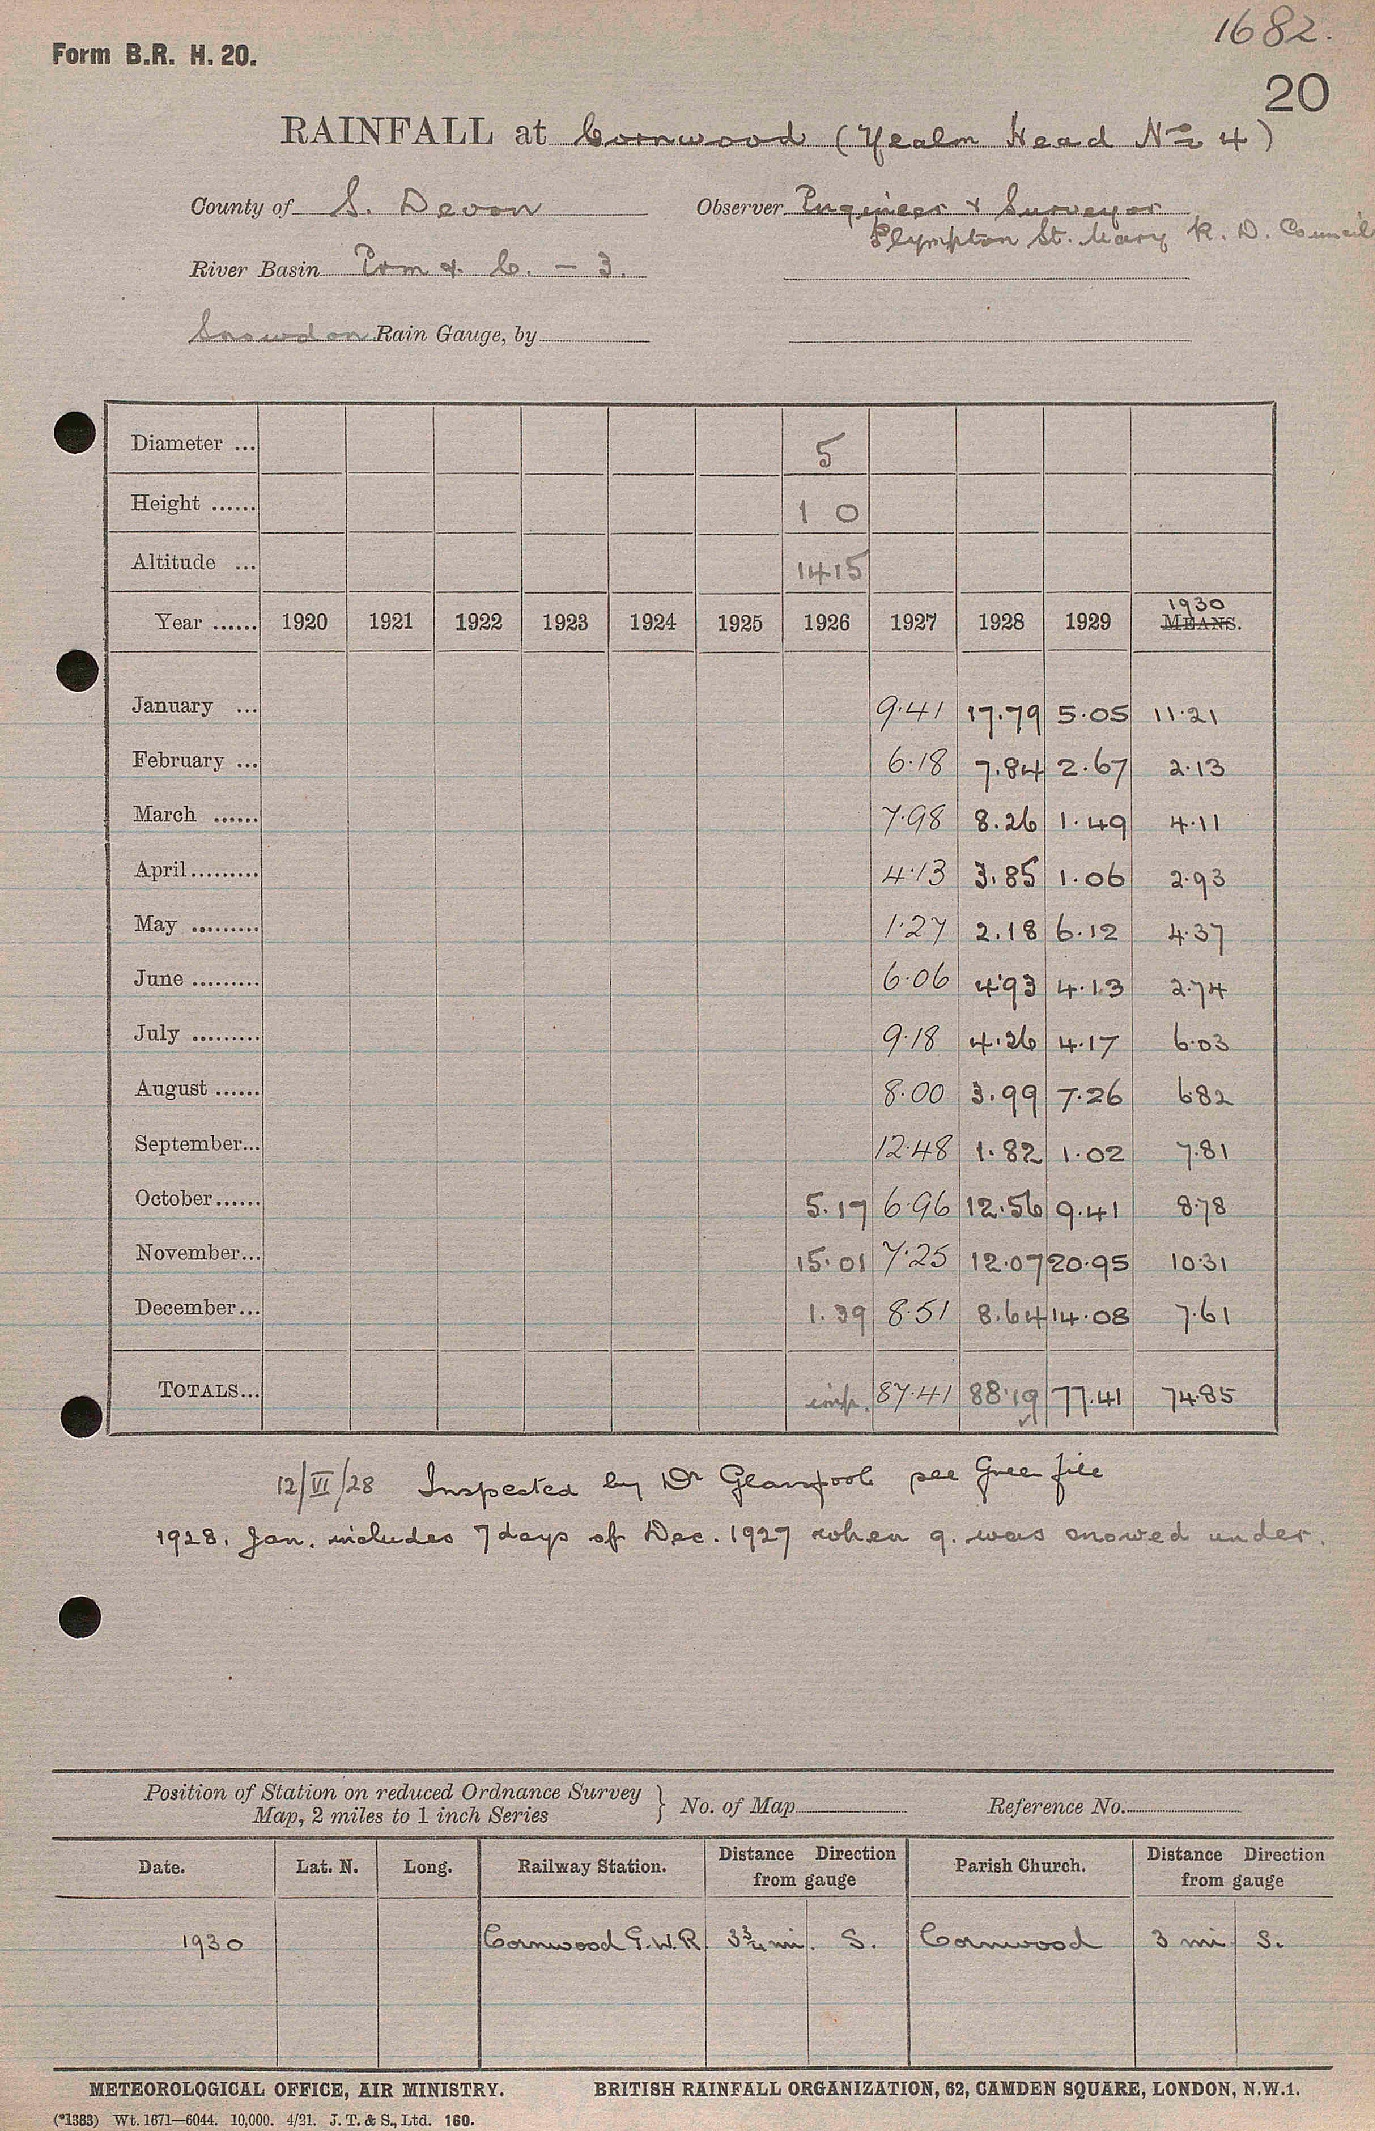 1682.
Form B.R. H. 20.
20
RAINFALL at Cornwood (Yealm Head No 4)
County of S. Devon Observer Engineer & Surveyor
Plympton St. Mary R. D. Council
River Basin Erm &. C. - 3.
Snowdon Rain Gauge, by
Diameter ... 5
Height ...... 1 0
Altitude ... 1415
1930
Year ...... 1920 1921 1922 1923 1924 1925 1926 1927 1928 1929 MEANS.
January ... 9.41 17.79 5.05 11.21
February ... 6.18 7.84 2.67 2.13
March ...... 7.98 8.26 1.49 4.11
April ......... 4.13 3.85 1.06 2.93
May ......... 1.27 2.18 6.12 4.37
June ......... 6.06 4.93 4.13 2.74
July ......... 9.18 4.26 4.17 6.03
August ...... 8.00 3.99 7.26 6.82
September... 12.48 1.82 1.02 7.81
October ...... 5.17 6.96 12.56 9.41 8.78
November... 15.01 7.25 12.07 20.95 10.31
December... 1.39 8.51 8.64 14.08 7.61
TOTALS... imp. 87.41 88.19 77.41 74.85
12/VI/28 Inspected by Dr Glasspoole see Green file
1928. Jan. includes 7 days of Dec. 1927 when g. was snowed under.
Position of Station on reduced Ordnance Survey
Map, 2 miles to 1 inch Series } No. of Map Reference No.
Date. Lat. N. Long. Railway Station. Distance Direction from gauge Parish Church. Distance Direction from gauge
1930 Cornwood G.W.R. 3¾ mi. S. Cornwood 3 mi S.
METEOROLOGICAL OFFICE, AIR MINISTRY. BRITISH RAINFALL ORGANIZATION, 62, CAMDEN SQUARE, LONDON, N.W.1.
(*1383) Wt. 1671—6044. 10,000. 4/21. J. T. & S., Ltd. 160.